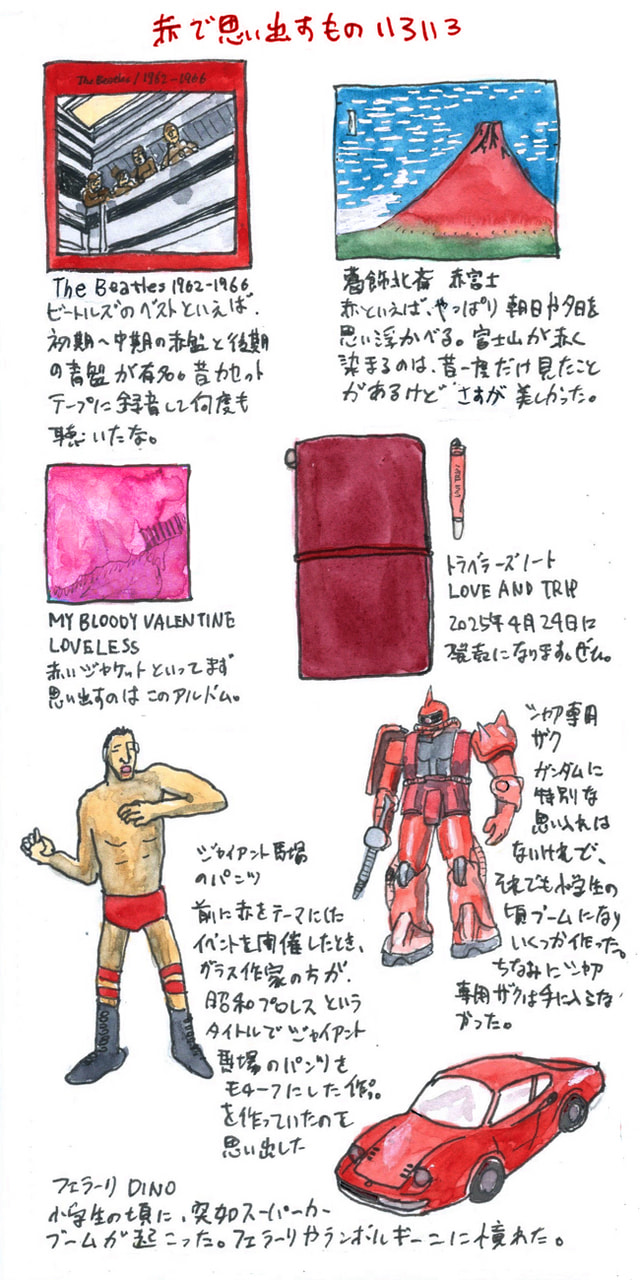 赤で思い出すものいろいろ
The Beatles / 1962-1966
The Beatles 1962-1966
ビートルズのベストといえば、
初期〜中期の赤盤と後期
の青盤が有名。昔カセット
テープに録音して何度も
聴いたな。
葛飾北斎 赤富士
赤といえば、やっぱり朝日や夕日を
思い浮かべる。富士山が赤く
染まるのは、昔一度だけ見たこと
があるけどさすが美しかった。
MY BLOODY VALENTINE
LOVELESS
赤いジャケットといってまず
思い出すのはこのアルバム。
LOVE TRIP
トラベラーズノート
LOVE AND TRIP
2025年4月24日に
発表になります。ぜひ。
シャア専用
ザク
ガンダムに
特別な
思い入れは
ないけれど、
それでも小学生の
頃ブームになり
いくつか作った。
ちなみにシャア
専用ザクは手に入らな
かった。
ジャイアント馬場
のパンツ
前に赤をテーマにした
イベントを開催したとき、
ガラス作家の方が、
昭和プロレスという
タイトルでジャイアント
馬場のパンツを
モチーフにした作品
を作っていたのを
思い出した
フェラーリ DINO
小学生の頃に、突如スーパーカー
ブームが起こった。フェラーリやランボルギーニに憧れた。